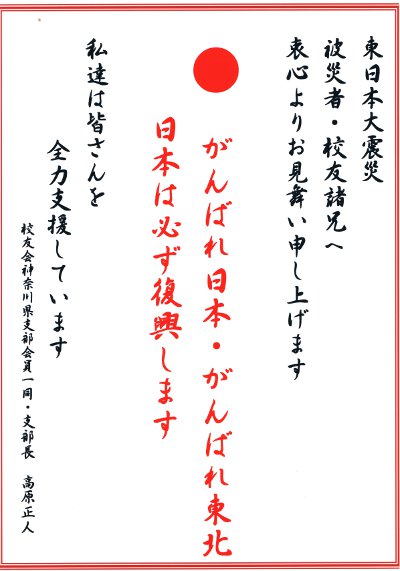 東日本大震災
被災者・校友諸兄へ
衷心よりお見舞い申し上げます
がんばれ日本・がんばれ東北
日本は必ず復興します
私達は皆さんを
全力支援しています
校友会神奈川県支部会員一同・支部長　高原正人